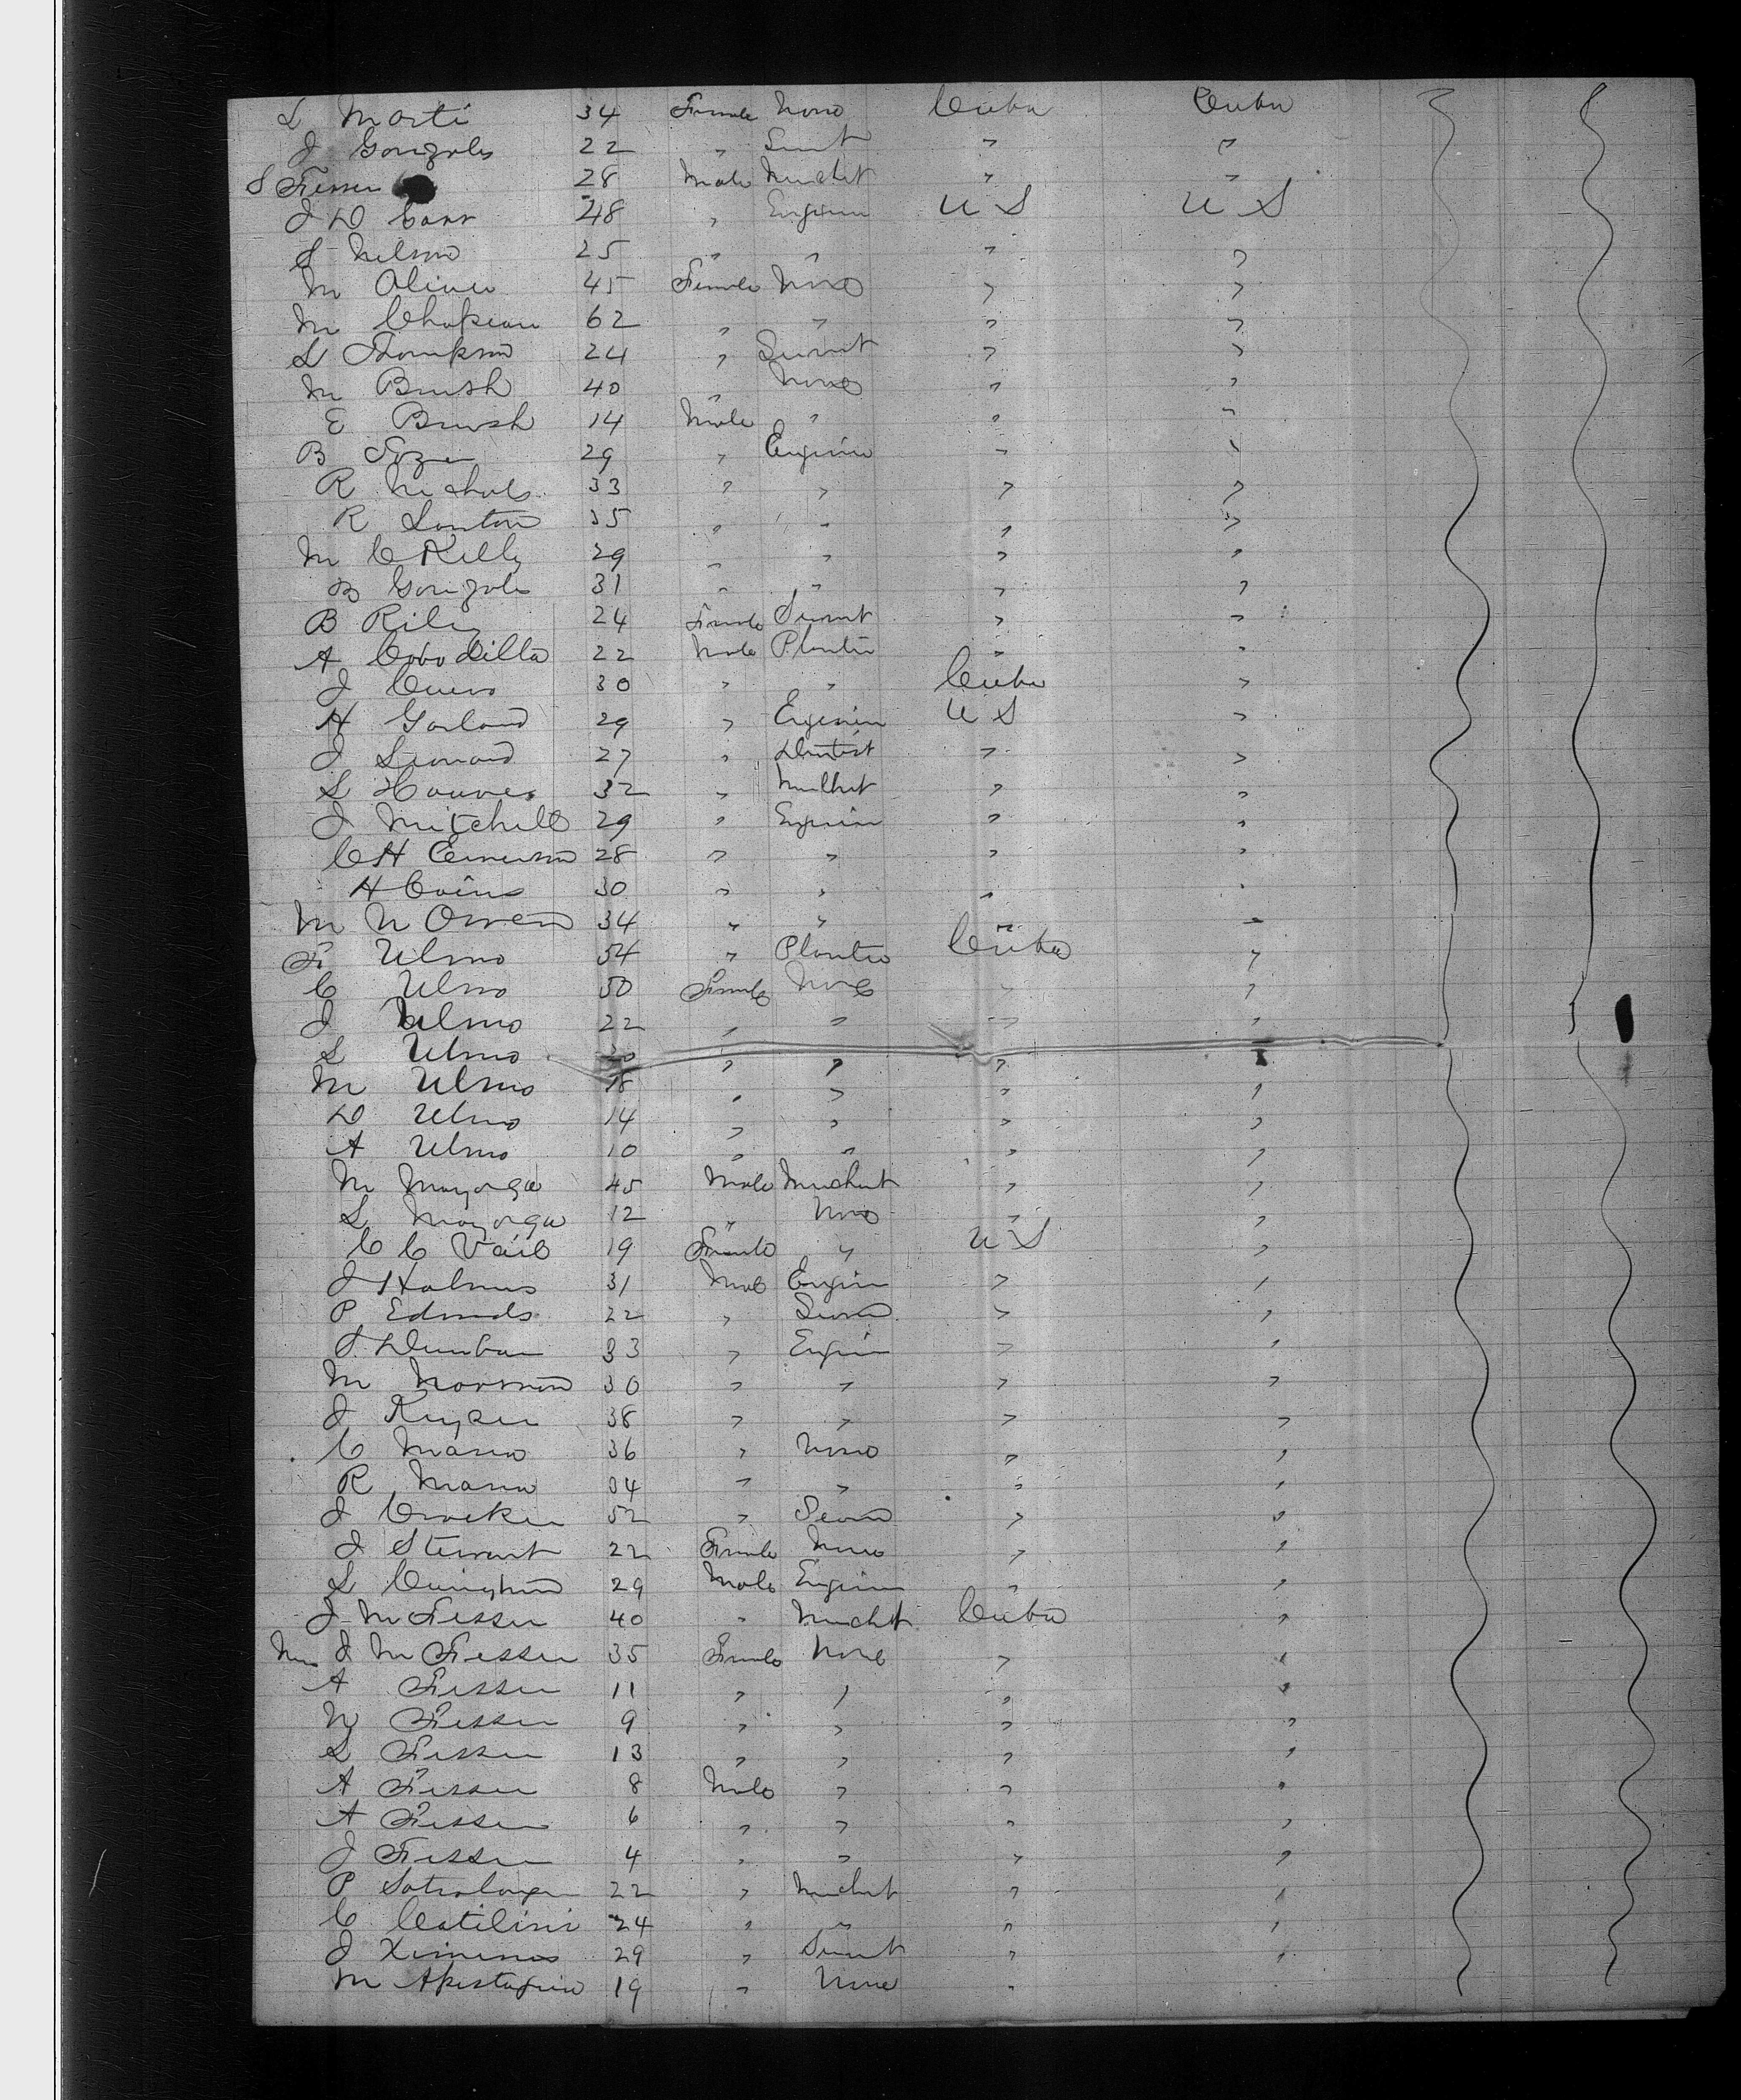 L Marti 34 Female None Cuba Cuba
J Gonzales 22 " Servt " "
S Fesser 28 Male Merchat " "
J D Carr 48 " Engineer U S U S
S Nelson 25 " " " "
M Oliver 45 Female None " "
M Chapeau 62 " " " "
L Thompson 24 " Servnt " "
M Brush 40 " None " "
E Brush 14 Male " " "
B 29 " Engineer " "
R Nichols 33 " " " "
R Santon 35 " " " "
M C Kelly 29 " " " "
B Gonzales 31 " " " "
B Riley 24 Female Servnt " "
A Covodilla 22 Male Planter " "
J 30 " " Cuba "
H Garland 29 " Engineer U S "
J Leonard 27 " Dentist " "
L 32 " " "
J Mitchell 29 " Engineer " "
C H Emerson 28 " " " "
H Coins 30 " " " "
M N Owen 34 " " " "
F Ulmo 54 " Planter Cuba "
C Ulmo 50 Female None " "
J Ulmo 22 " " " "
L Ulmo 20 " " " "
M Ulmo 18 " " " "
D Ulmo 14 " " " "
A Ulmo 10 " " " "
M Mayorga 45 Male Merchant " "
L Mayorga 12 " None " "
C C Vail 19 Female " U S "
J Holmes 31 Male Engin " "
P Edmonds 22 " " "
S Dunbar 33 " Engin " "
M Morrison 30 " " " "
J Keyser 38 " " " "
C Mann 36 " None " "
R Mann 34 " " " "
J Crocker 52 " " "
J Stewart 22 Female None " "
L Cunigham 29 Male Engineer " "
J M Fesser 40 " Merchat Cuba "
Mrs J M Fesser 35 Female None " "
A Fesser 11 " " " "
N Fesser 9 " " " "
L Fesser 13 " " " "
A Fesser 8 Male " " "
A Fesser 6 " " " "
J Fesser 4 " " " "
P Sotolongo 22 " Merchat " "
C Catilini 24 " " " "
J Ximenes 29 " Servnt " "
M Apestaguia 19 " None "